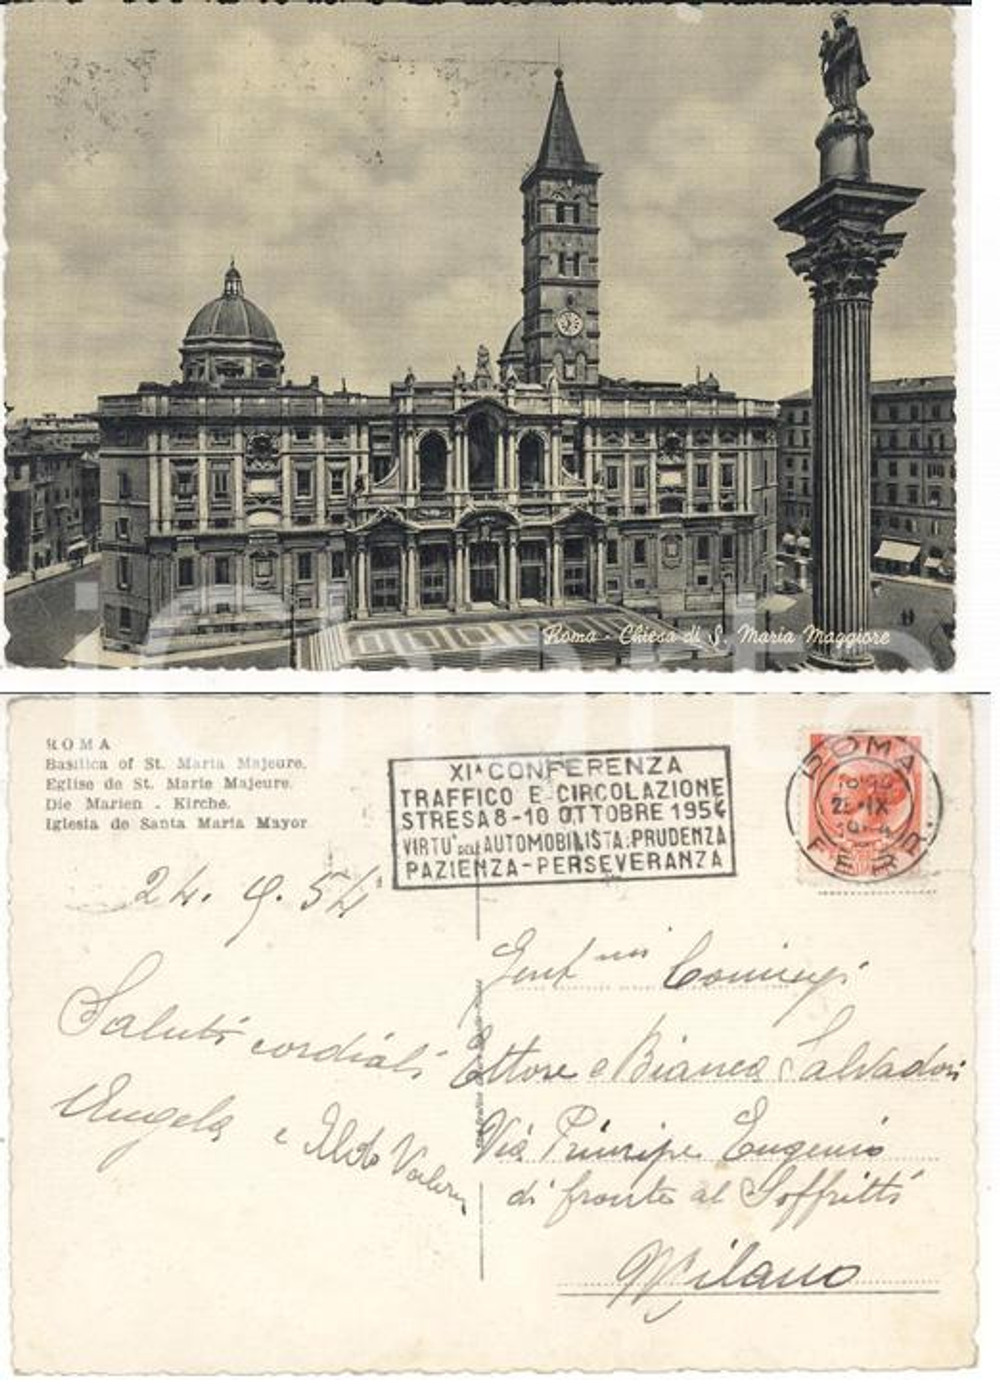 Roma - Chiesa di S. Maria Maggiore
ROMA
Basilica of St. Maria Majeure.
Eglise de St. Marie Majeure.
Die Marien - Kirche.
Iglesia de Santa Maria Mayor
XIª CONFERENZA
TRAFFICO E CIRCOLAZIONE
STRESA 8-10 OTTOBRE 1954
VIRTU' DELL'AUTOMOBILISTA: PRUDENZA
PAZIENZA-PERSEVERANZA
ROMA
IX
FERR.
24. 9. 54
Saluti cordiali
Angela e Aldo
Gent.mi Coniugi
Ettore e Bianca Salvadori
Via Principe Eugenio
di fronte al Soffritti
Milano